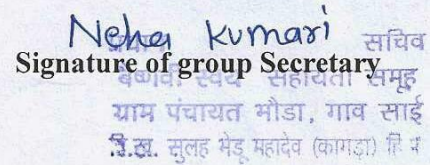 Neha Kumari
सचिव
Signature of group Secretary
वैष्णवी स्वयं सहायता समूह
ग्राम पंचायत भौडा, गाव साई
वि.ख. सुलह भेडू महादेव (कांगडा) हि प्र